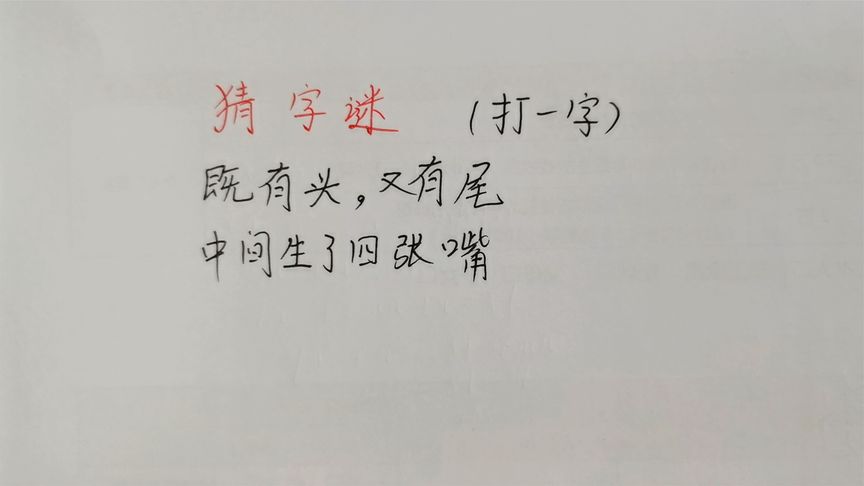 猜字谜 (打一字)
既有头,又有尾
中间生了四张嘴